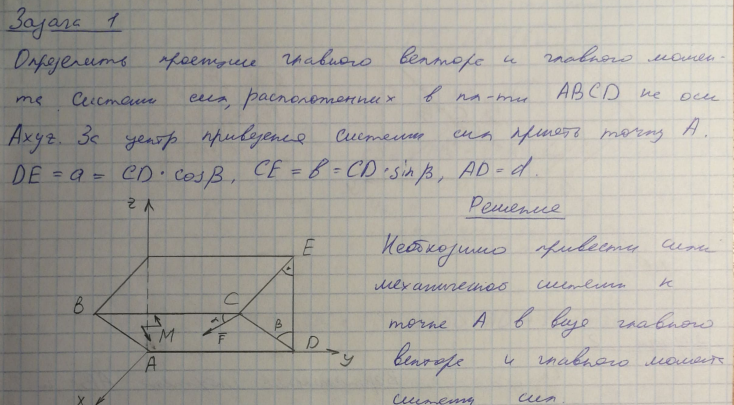 Задача 1
Определить проекции главного вектора и главного момен-
та системы сил, расположенных в пл-ти ABCD на оси
Axyz. За центр приведения системы сил принять точку A.
DE = a = CD · cosβ, CE = b = CD · sinβ, AD = d.
Решение
Необходимо привести силы
механической системы к
точке A в виде главного
вектора и главного момента
системы сил.
z
E
B
C
α
F
β
M
D
A
y
x